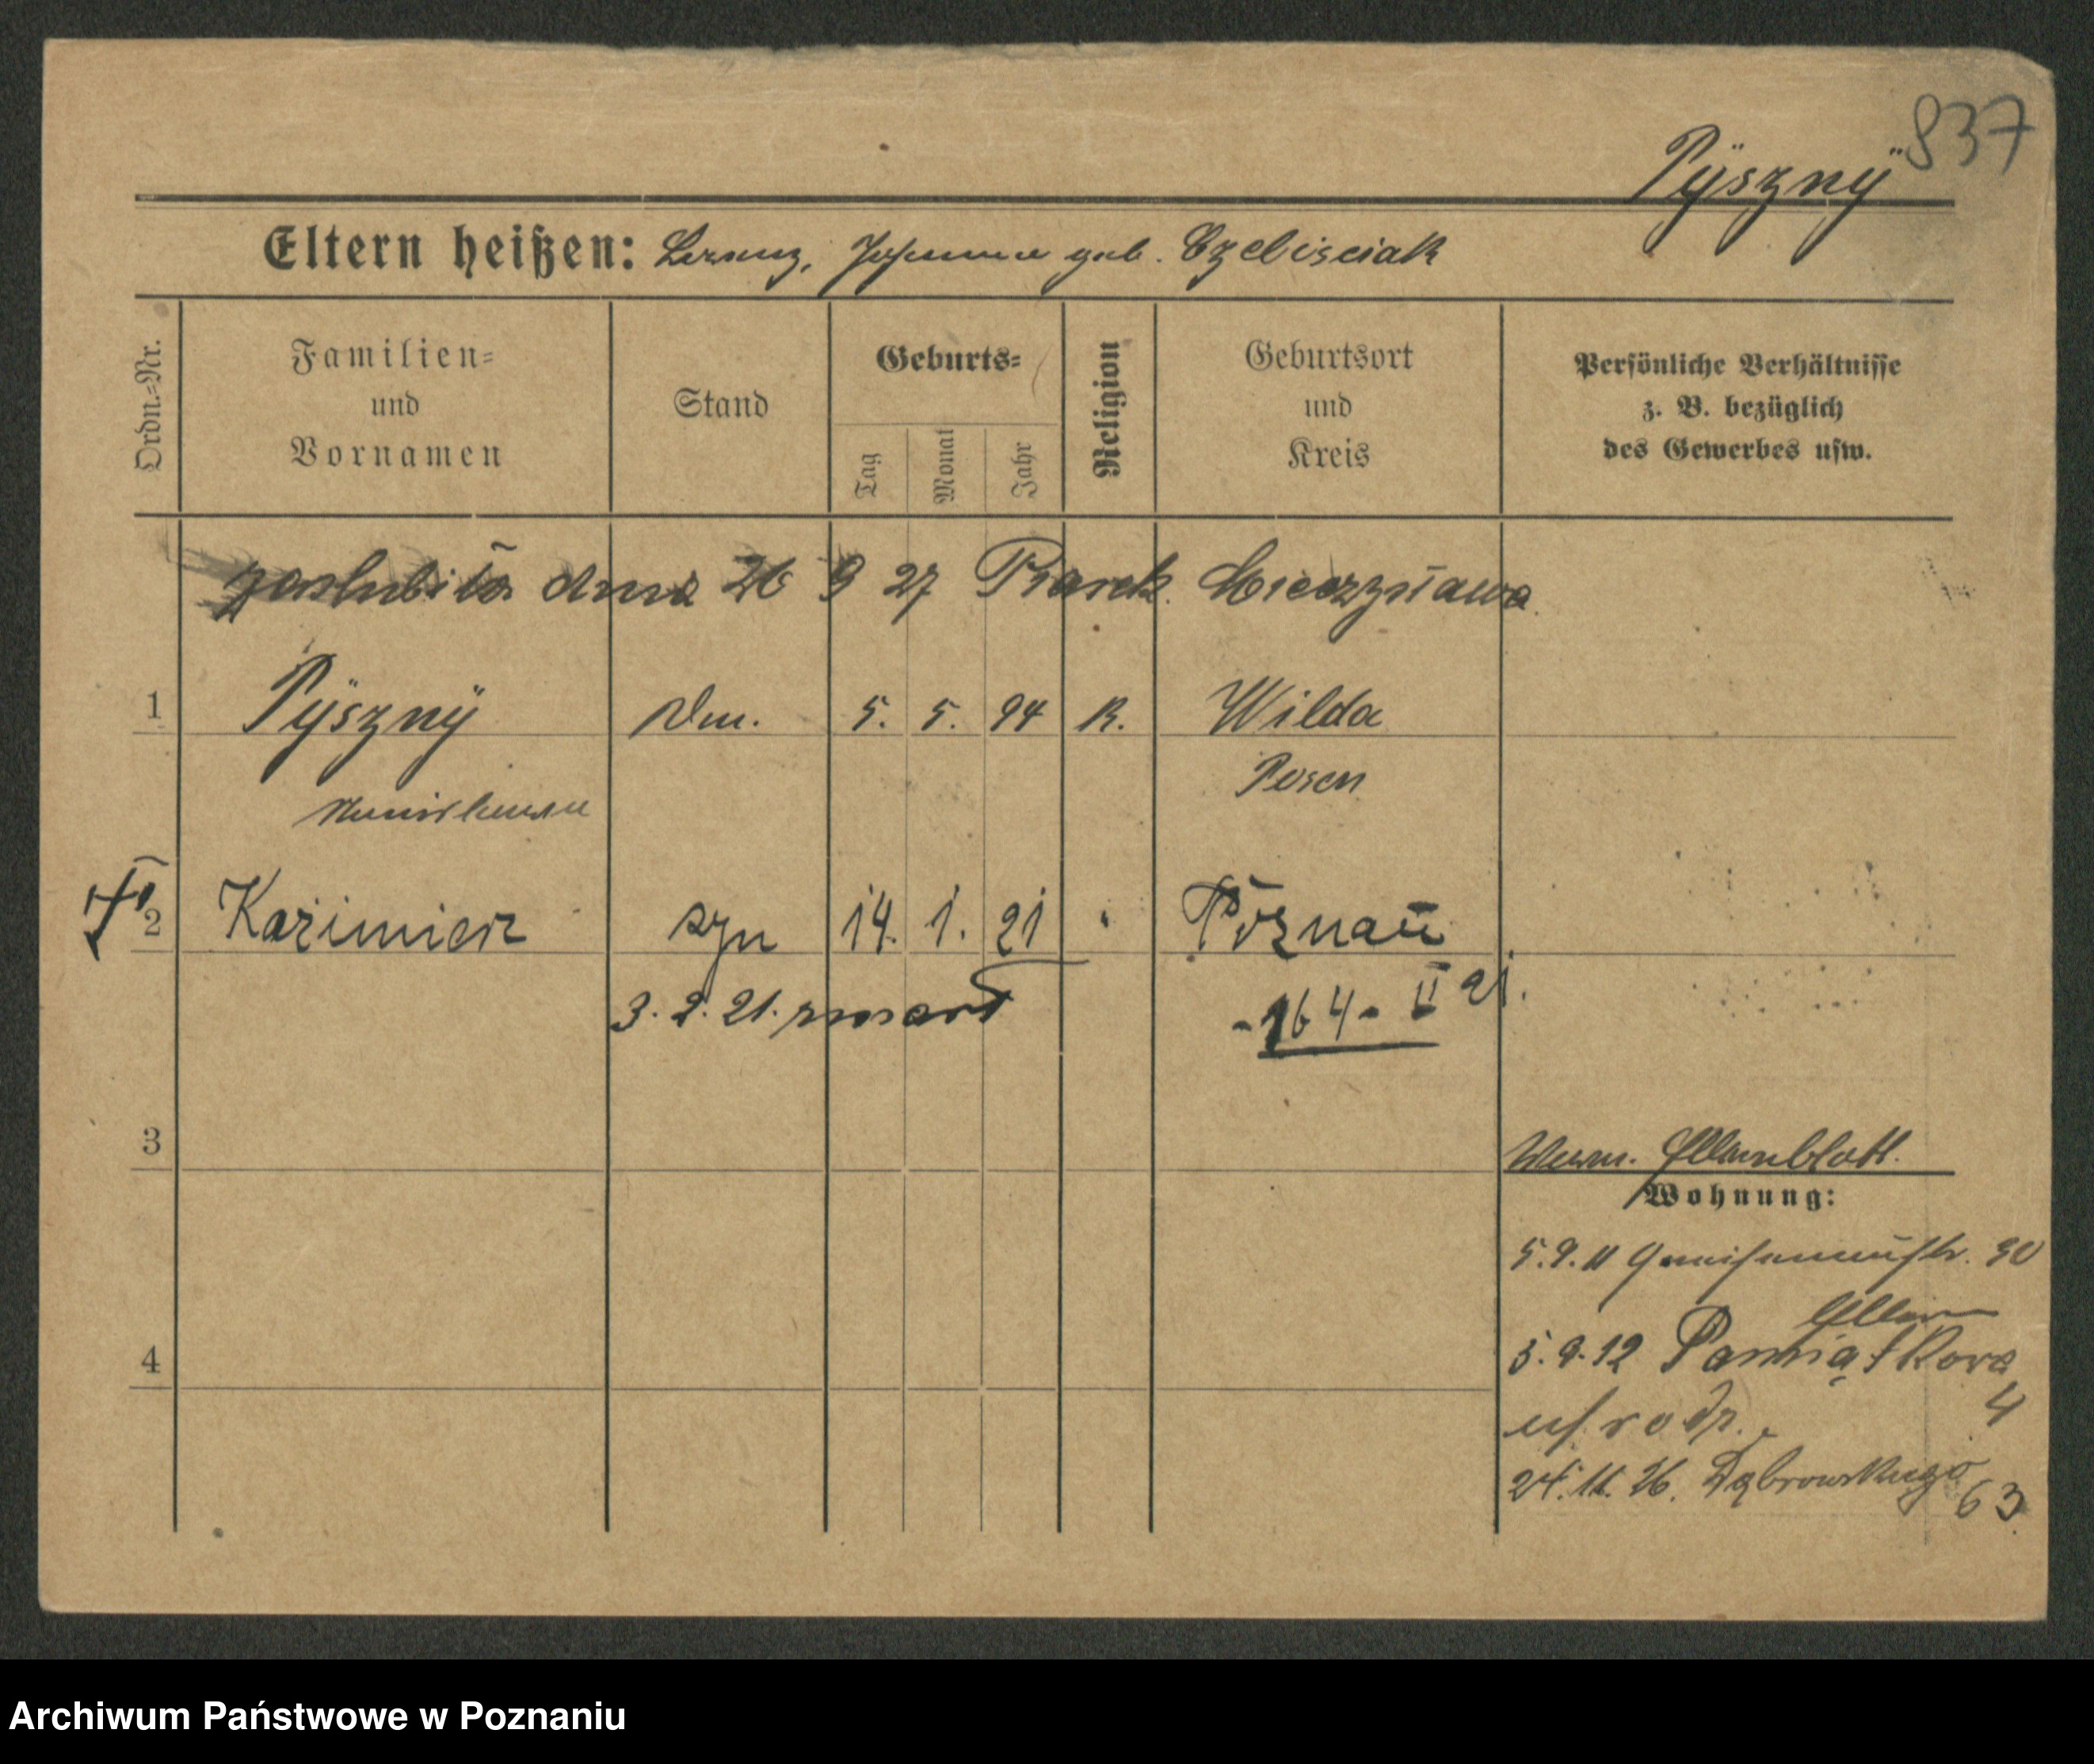 837
Pÿsznÿ
Eltern heißen: Lorenz, Johanna geb. Czebisciak
Ordn.=Nr.
Familien=
und
Vornamen
Stand
Geburts=
Tag
Monat
Jahr
Religion
Geburtsort
und
Kreis
Persönliche Verhältnisse
z. B. bezüglich
des Gewerbes usw.
zaslubiła dnia 26 9 27 Mieczysława
1 Pÿsznÿ 5. 5. 94 K. Wilda
Posen
2 Kazimierz syn 14. 1. 21 " Poznań
3. 2. 21. zmarł
-164- II 21.
3
Elternblatt.
Wohnung:
5.9.11 Gneisenaustr. 30
Eltern
5.9.12 Pamiątkowa
4
uf. rodz.
24.11.26. Dąbrowskiego
63
4
Archiwum Państwowe w Poznaniu